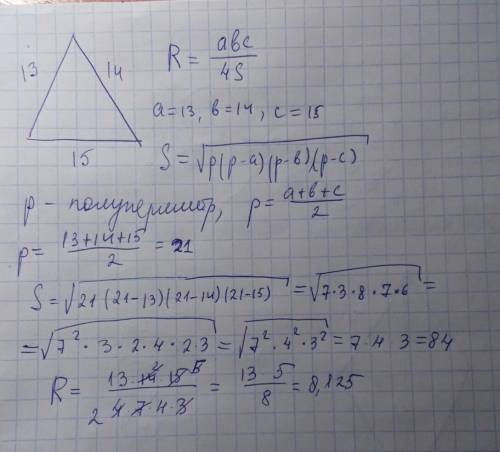 13 14
15
R = abc / 4S
a=13, в=14, c=15
S = √p(p-a)(p-в)(p-c)
p - полупериметр, p = a+в+c / 2
p = 13+14+15 / 2 = 21
S = √21(21-13)(21-14)(21-15) = √7·3·8·7·6 =
= √7²·3·2·4·2·3 = √7²·4²·3² = 7·4 3 = 84
R = 13·14 2 15 5 / 2 4·7·4·3 = 13 5 / 8 = 8,125